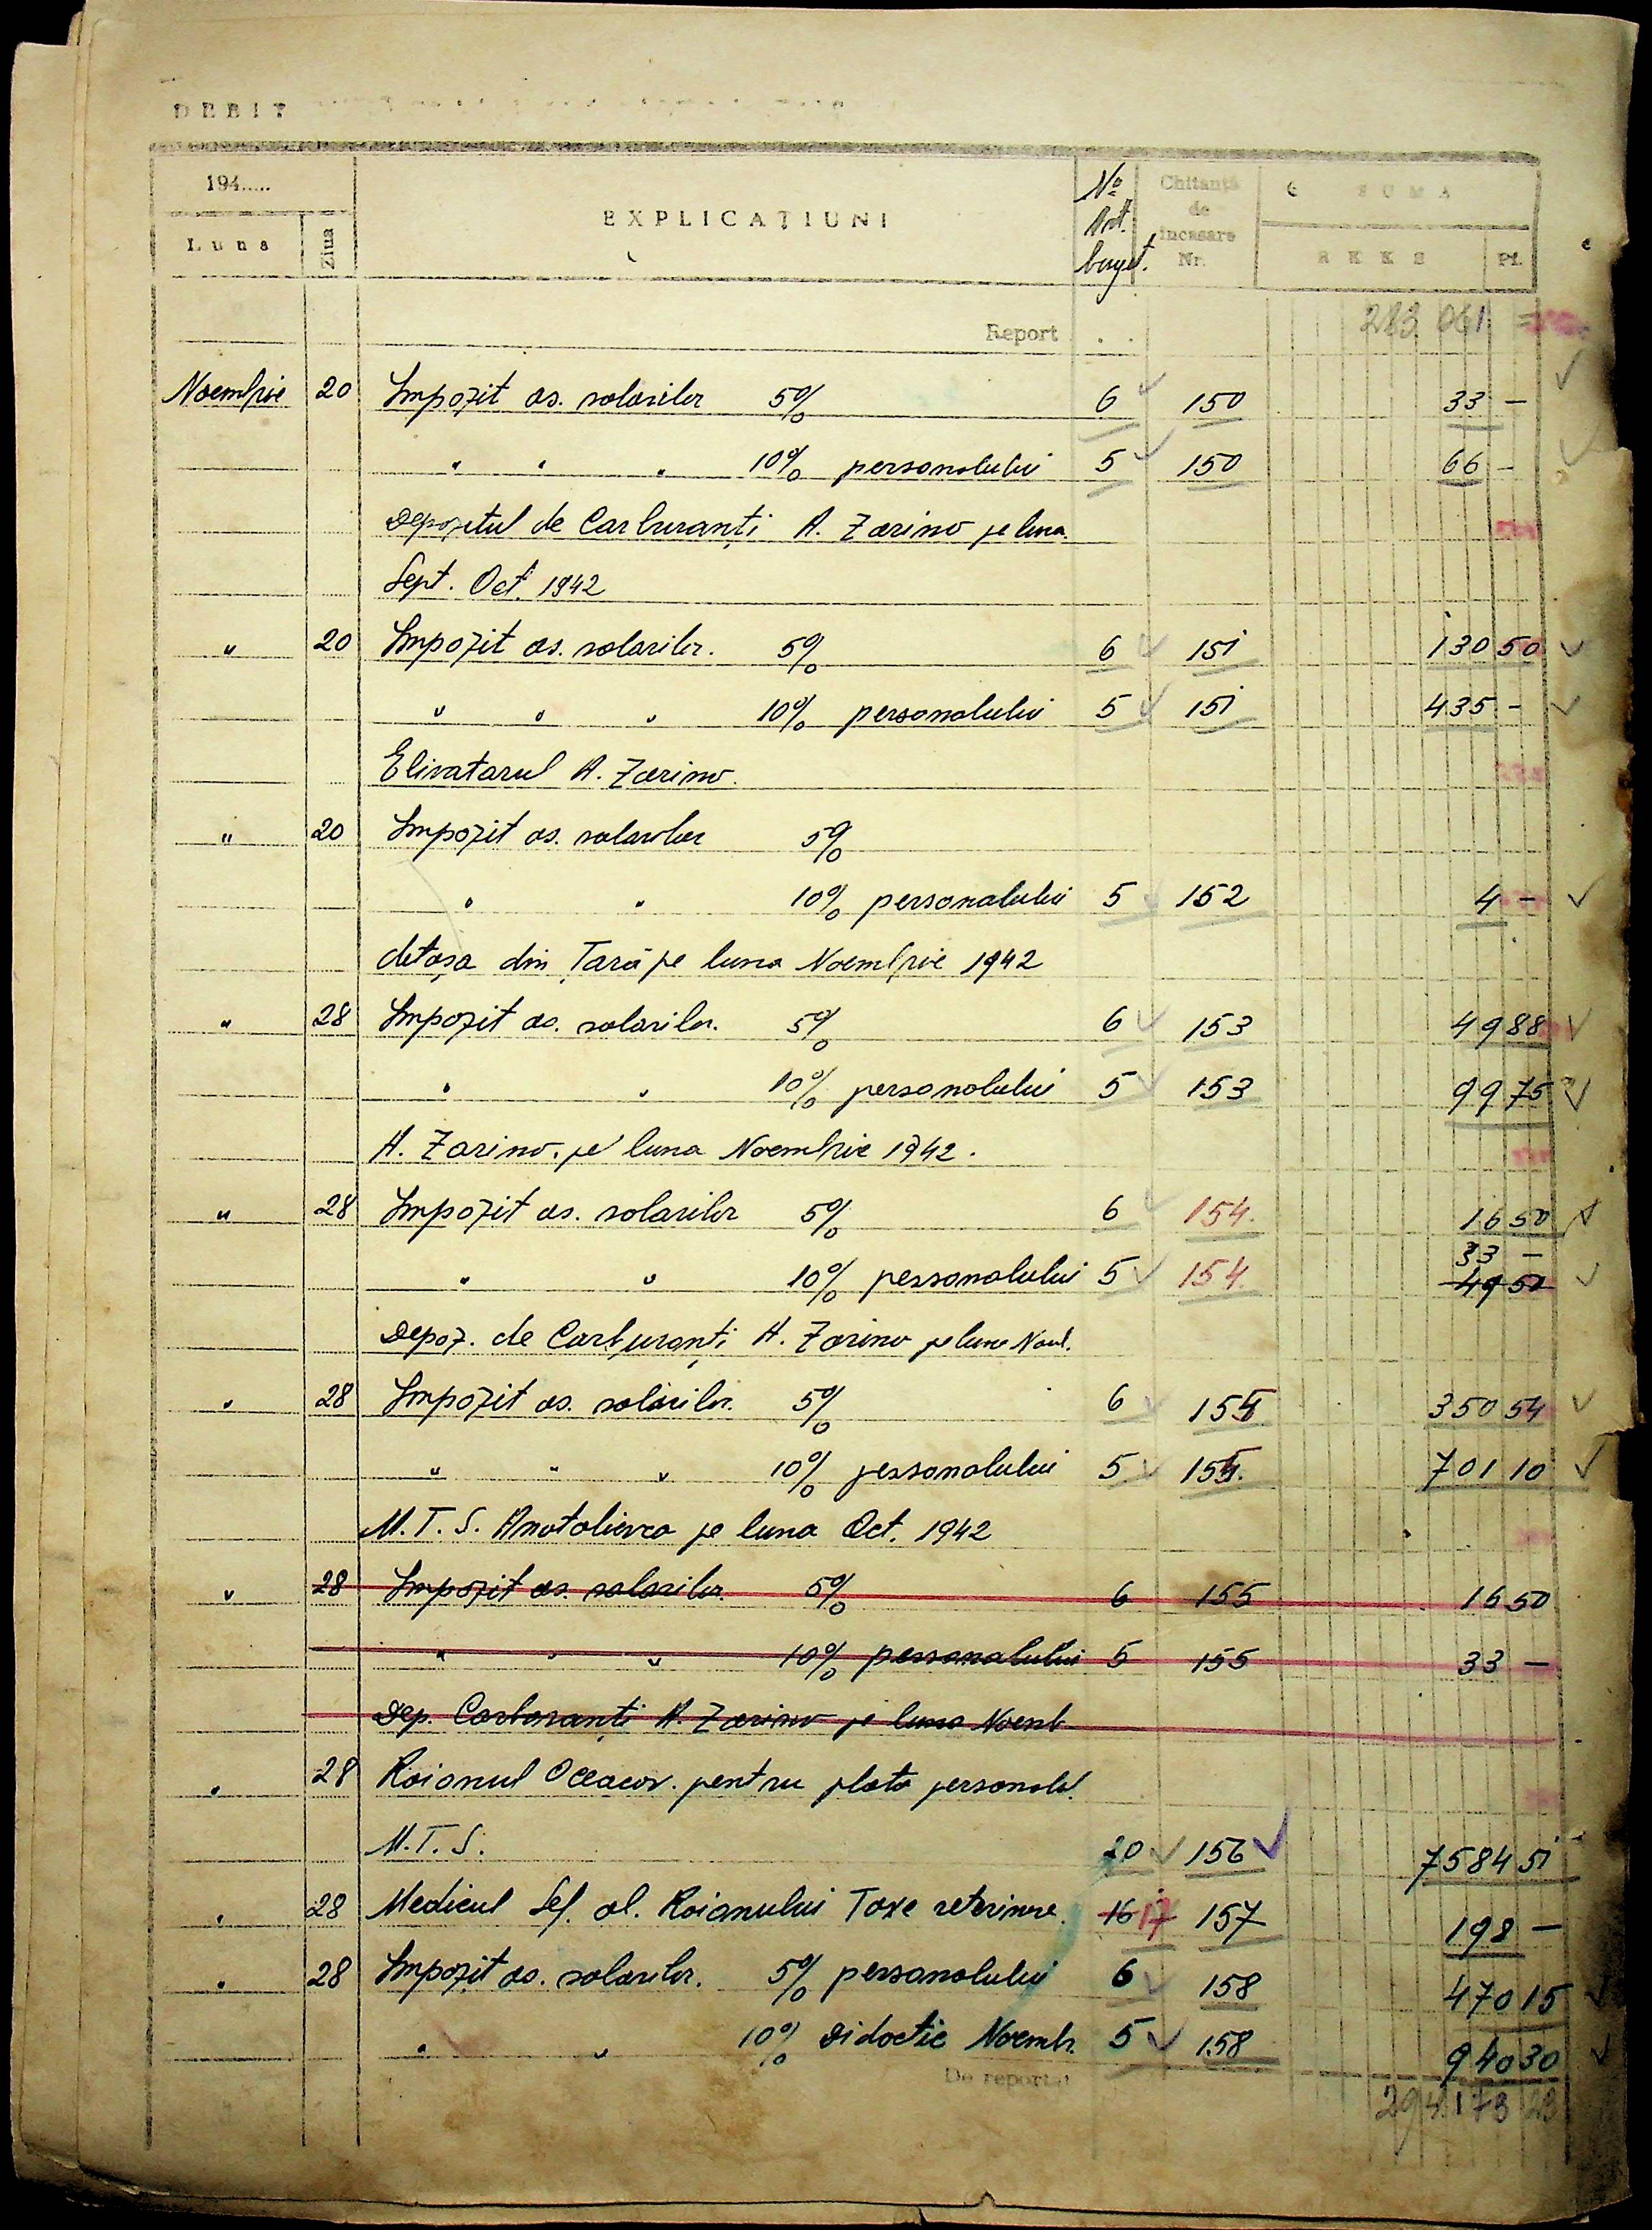 DEBIT
194.....
Luna
Ziua
EXPLICAȚIUNI
No Art. buget.
Chitanță de încasare Nr.
SUMA
RKKS
Pf.
Report . . 283 061
Noembrie 20 Impozit as. salariilor 5% 6 150 33 —
" " " 10% personalului 5 150 66 —
Depozitul de Carburanți A. Zarino pe luna
Sept. Oct. 1942
" 20 Impozit as. salariilor. 5% 6 151 130 50
" " " 10% personalului 5 151 435 —
Elivatarul A. Zarino.
" 20 Impozit as. salariilor 5%
" " 10% personalului 5 152 4 —
detașa din Țară pe luna Noembrie 1942
" 28 Impozit as. salariilor. 5% 6 153 49 88
" " 10% personalului 5 153 99 75
A. Zarino. pe luna Noembrie 1942.
" 28 Impozit as. salariilor 5% 6 154. 16 50
33 —
" " 10% personalului 5 154. 49 50
Depoz. de Carburanți A. Zarino pe luna
" 28 Impozit as. salariilor. 5% 6 155 350 54
" " " 10% personalului 5 155. 701 10
M.T.S. Anatolievca pe luna Oct. 1942
" 28 Impozit as. salariilor. 5% 6 155 16 50
" " " 10% personalului 5 155 33 —
Dep. Carboranți A. Zarino pe luna Noemb.
" 28 Raionul Oceacov. pentru plata personalul.
M.T.S. 20 156 7584 51
" 28 Medicul Șef. al. Raionului Taxe veterinare. 16 17 157 198 —
" 28 Impozit as. salariilor. 5% personalului 6 158 470 15
" " 10% Didactic Noemb. 5 158 940 30
De reportat 294.173 23